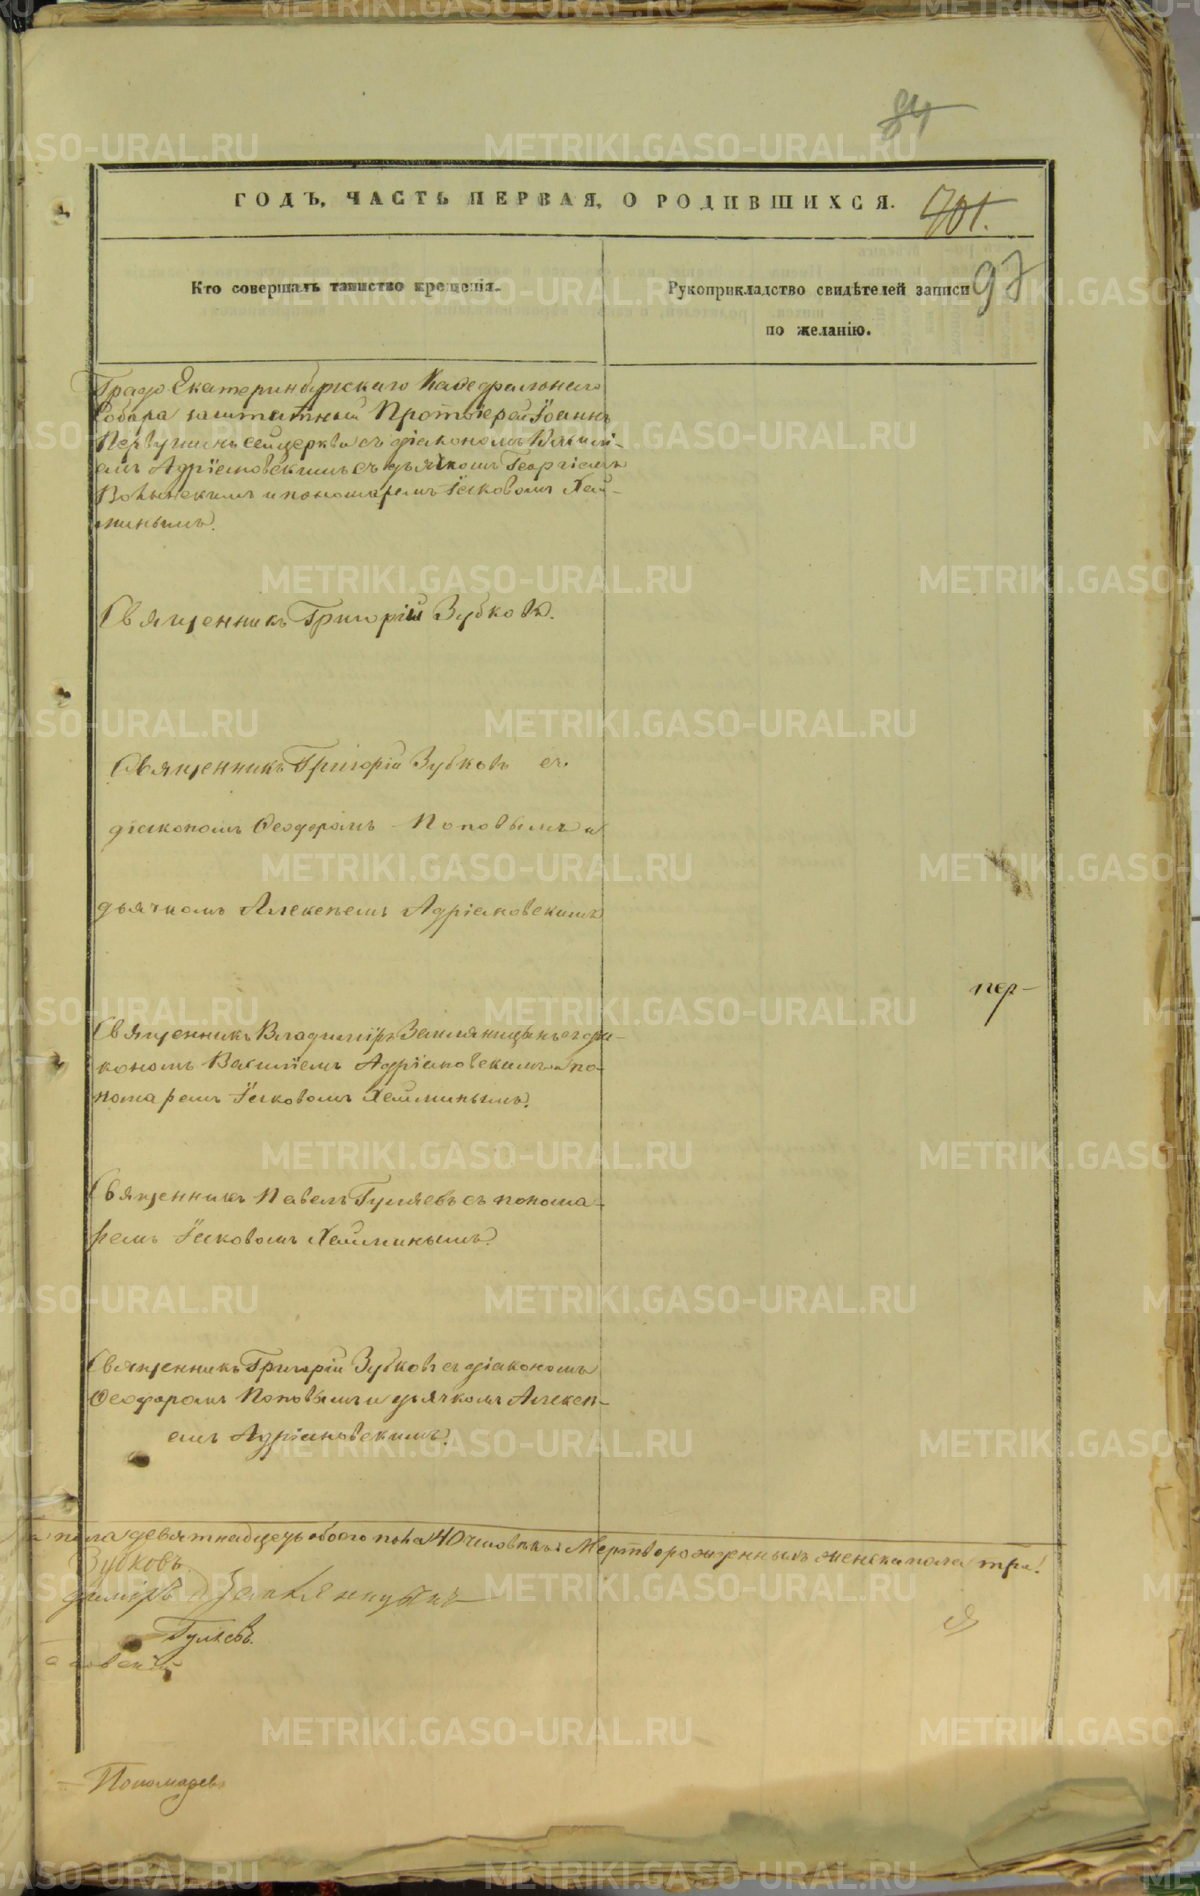 84
ГОДЪ, ЧАСТЬ ПЕРВАЯ, О РОДИВШИХСЯ. 701.
Кто совершалъ таинство крещенія.
Рукоприкладство свидѣтелей записи 97
по желанію.
Градо Екатеринбургскаго Каѳедральнаго
Собора заштатный Протоіерей Іоаннъ
Первушинъ сей церкви съ діакономъ Васілі-
емъ Адріановскимъ съ дьячкомъ Георгіемъ
Волынскимъ и пономаремъ Іаковомъ Хай-
миннымъ.
Священникъ Григорій Зубковъ.
Священникъ Григорій Зубковъ съ
діакономъ Ѳеодоромъ Поповымъ и
дьячкомъ Алексѣемъ Адріановскимъ
пер-
Священникъ Владиміръ Земляницынъ съ діа-
кономъ Василіемъ Адріановскимъ и по-
номаремъ Іаковомъ Хайминымъ.
Священникъ Павелъ Гуляевъ съ понома-
ремъ Іаковомъ Хайминымъ.
Священникъ Григорій Зубковъ съ діакономъ
Ѳеодоромъ Поповымъ и дьячкомъ Алексѣ-
емъ Адріановскимъ.
пола девятнадцать обоего пола 40 человѣкъ: Мертворожденныхъ женска пола три!
Зубковъ
диміръ Земляницынъ
Гуляевъ.
Пономарев
METRIKI.GASO-URAL.RU